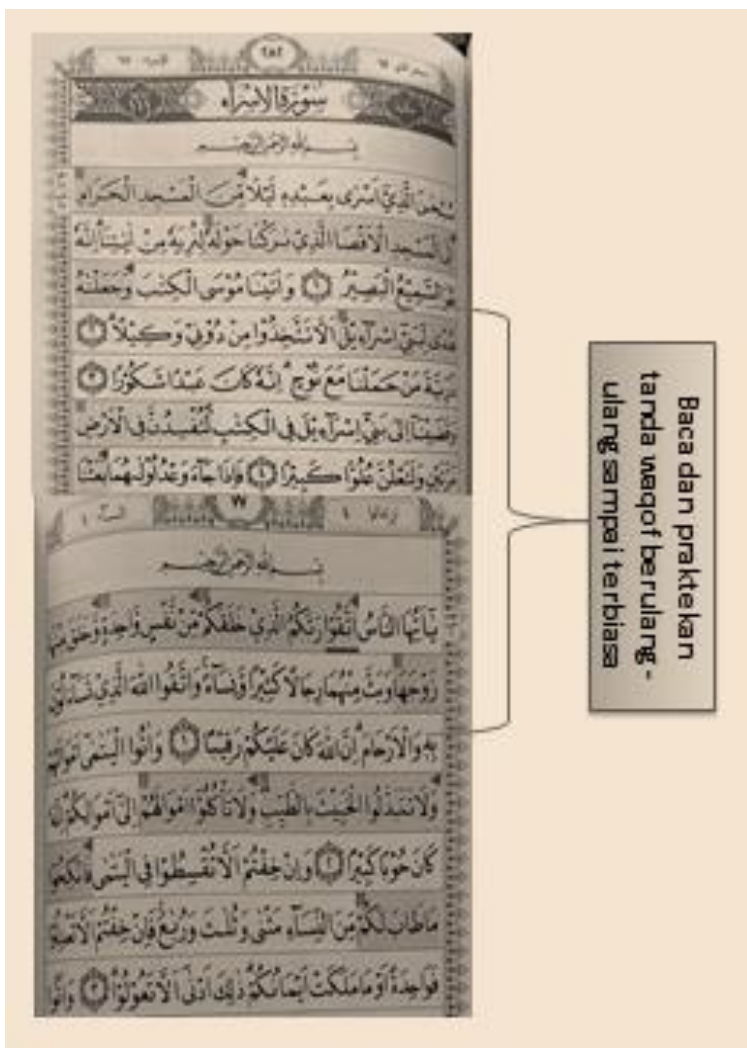 ٢٨٢
سُوْرَةُ الْاِسْرَاۤء
بِسْمِ اللهِ الرَّحْمٰنِ الرَّحِيْمِ
سُبْحٰنَ الَّذِيْٓ اَسْرٰى بِعَبْدِهٖ لَيْلًا مِّنَ الْمَسْجِدِ الْحَرَامِ
اِلَى الْمَسْجِدِ الْاَقْصَا الَّذِيْ بٰرَكْنَا حَوْلَهٗ لِنُرِيَهٗ مِنْ اٰيٰتِنَاۗ اِنَّهٗ
هُوَ السَّمِيْعُ الْبَصِيْرُ ١ وَاٰتَيْنَا مُوْسَى الْكِتٰبَ وَجَعَلْنٰهُ
هُدًى لِّبَنِيْٓ اِسْرَاۤءِيْلَ اَلَّا تَتَّخِذُوْا مِنْ دُوْنِيْ وَكِيْلًاۗ ٢
ذُرِّيَّةَ مَنْ حَمَلْنَا مَعَ نُوْحٍۗ اِنَّهٗ كَانَ عَبْدًا شَكُوْرًا ٣
وَقَضَيْنَآ اِلٰى بَنِيْٓ اِسْرَاۤءِيْلَ فِى الْكِتٰبِ لَتُفْسِدُنَّ فِى الْاَرْضِ
مَرَّتَيْنِ وَلَتَعْلُنَّ عُلُوًّا كَبِيْرًا ٤ فَاِذَا جَاۤءَ وَعْدُ اُوْلٰىهُمَا بَعَثْنَا
٧٧
بِسْمِ اللهِ الرَّحْمٰنِ الرَّحِيْمِ
يٰٓاَيُّهَا النَّاسُ اتَّقُوْا رَبَّكُمُ الَّذِيْ خَلَقَكُمْ مِّنْ نَّفْسٍ وَّاحِدَةٍ وَّخَلَقَ مِنْهَا
زَوْجَهَا وَبَثَّ مِنْهُمَا رِجَالًا كَثِيْرًا وَّنِسَاۤءً وَاتَّقُوا اللهَ الَّذِيْ تَسَاۤءَلُوْنَ
بِهٖ وَالْاَرْحَامَ اِنَّ اللهَ كَانَ عَلَيْكُمْ رَقِيْبًا ١ وَاٰتُوا الْيَتٰمٰٓى اَمْوَالَهُمْ
وَلَا تَتَبَدَّلُوا الْخَبِيْثَ بِالطَّيِّبِ وَلَا تَأْكُلُوْٓا اَمْوَالَهُمْ اِلٰٓى اَمْوَالِكُمْ
كَانَ حُوْبًا كَبِيْرًا ٢ وَاِنْ خِفْتُمْ اَلَّا تُقْسِطُوْا فِى الْيَتٰمٰى فَانْكِحُوْا
مَا طَابَ لَكُمْ مِّنَ النِّسَاۤءِ مَثْنٰى وَثُلٰثَ وَرُبٰعَ فَاِنْ خِفْتُمْ اَلَّا
فَوَاحِدَةً اَوْ مَا مَلَكَتْ اَيْمَانُكُمْ ذٰلِكَ اَدْنٰٓى اَلَّا تَعُوْلُوْا ٣ وَاٰتُوا
Baca dan praktekan
tanda waqof berulang-
ulang sampai terbiasa